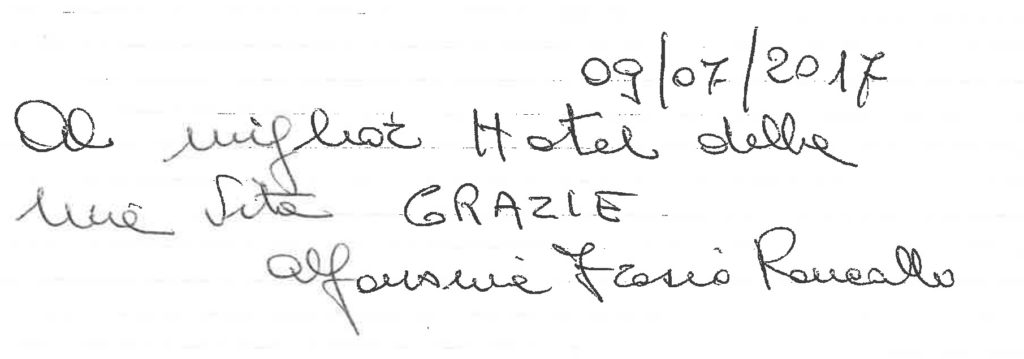 09/07/2017
Al miglior Hotel della
mia vita GRAZIE
Alfonsina Frasio Roncallo